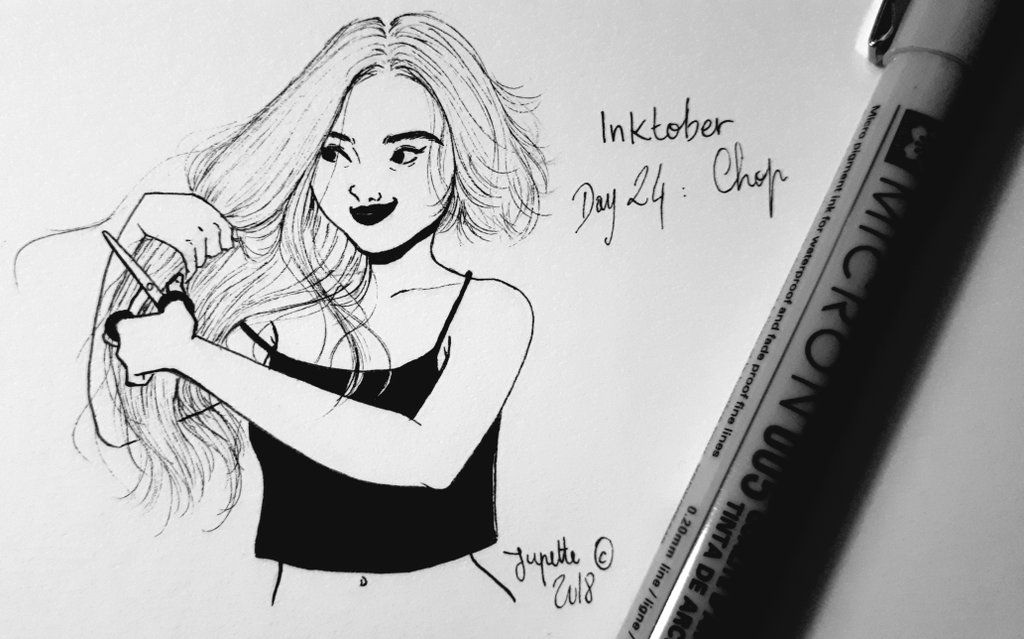 Inktober
Day 24 : Chop
Jupette ©
2018
MICRON 005
Micro pigment ink for waterproof and fade proof fine lines
0.20mm line / ligne /
TINTA DE ARC